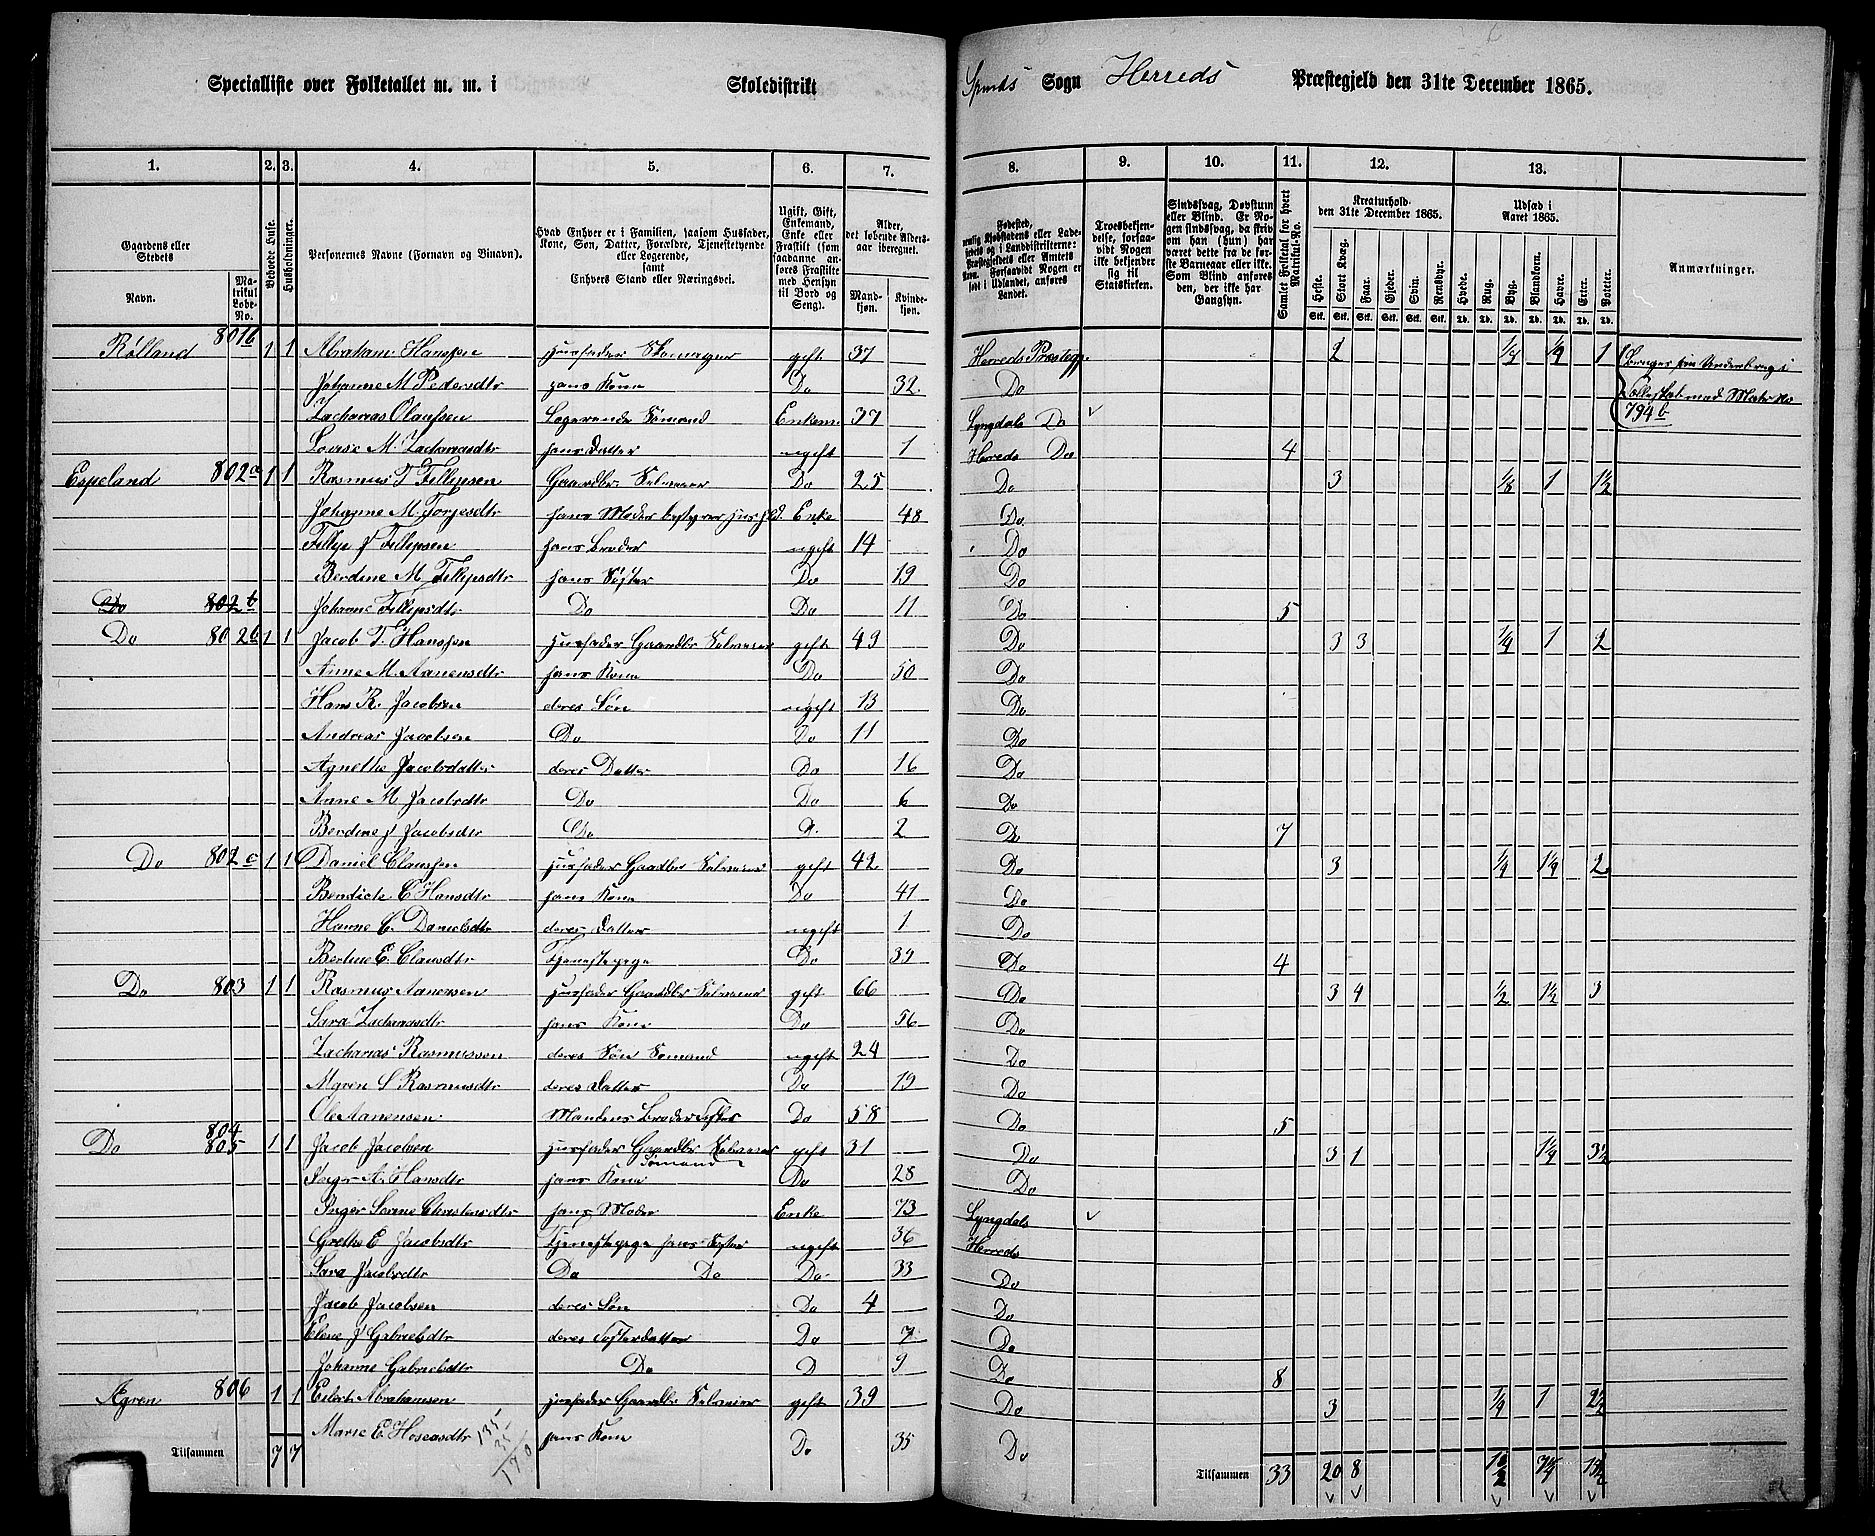 Specialliste over Folketallet m. m. i Skoledistrikt Spinds Sogn Herreds Præstegjeld den 31te December 1865.
1. 2. 3. 4. 5. 6. 7. 8. 9. 10. 11. 12. 13.
Gaardens eller Stedets
Navn.
Matrikul Løbe-No.
Beboede Huse.
Husholdninger.
Personernes Navne (Fornavn og Binavn).
Hvad Enhver er i Familien, saasom Husfader, Kone, Søn, Datter, Forældre, Tjenestetyende eller Logerende,
samt
Enhvers Stand eller Næringsvei.
Ugift, Gift, Enkemand, Enke eller Frastilt (som saadanne anføres Frastilte med Hensyn til Bord og Seng).
Alder, det løbende Aldersaar iberegnet.
Mandkjøn. Kvindekjøn.
Troesbekjendelse, forsaavidt Nogen ikke bekjender sig til Statskirken.
Sindssvag, Døvstum eller Blind. Er Nogen sindssvag, da skriv om han (hun) har været dette fra de første Barneaar eller ikke. Som Blind anføres den, der ikke har Gangsyn.
Samlet Folketal for hvert Matrikul-No.
Kreaturhold den 31te December 1865.
Heste. Stort Kvæg. Faar. Gjeder. Svin. Rensdyr.
Udsæd i Aaret 1865.
Hvede. Rug. Byg. Blandkorn. Havre. Erter. Poteter.
Anmærkninger.
Rølland 801b 1 1 Abraham Hanssen Husfader gift 37 Herreds Præstegj. 2 1
Johanne M Pedersdtr hans Kone Do 32 Do
Zacharias Olaussen Logerende Sømand Enkem. 37 Lyngdals Do
794b
Lovise M. Zachariasdtr hans Datter ugift 1 Herreds Do 4
Espeland 802a 1 1 Rasmus T Fillipsen Gaardbr. Selveier Do 25 Do 3 1/8 1 1½
Johanne M Torjesdtr hans Moder bestyrer Enke 48 Do
Fillip J Fillipsen hans Broder ugift 14 Do
Berdine M Fillipsdtr hans Søster Do 19 Do
Do 802b Johanne Fillipsdtr Do Do 11 Do 5
Do 802b 1 1 Jacob T. Hanssen Husfader Gaardbr Selveier gift 49 Do 3 3 ¼ 1 2
Anne M. Aanensdtr hans Kone Do 50 Do
Hans R. Jacobsen deres Søn ugift 13 Do
Andreas Jacobsen Do Do 11 Do
Agnethe Jacobsdatter deres Datter Do 16 Do
Anne M Jacobsdtr Do Do 6 Do
Berdine J Jacobsdtr Do D. 2 Do 7
Do 802c 1 1 Daniel Claussen Husfader Gaardbr Selveier gift 42 Do 3 ¼ 1¼ 2
Bendicte C Hansdtr hans Kone Do 41 Do
Hanne C. Danielsdtr deres Datter ugift 1 Do
Bertine E. Clausdtr Tjenestepige Do 39 Do 4
Do 803 1 1 Rasmus Aanensen Husfader Gaardbr Selveier gift 66 Do 3 4 ½ 1½ 3
Sara Zachariasdtr hans Kone Do 56 Do
Zacharias Rasmussen deres Søn Sømand ugift 24 Do
Maren S Rasmusdtr deres Datter Do 19 Do
Ole Aanensen Mandens Broder Do 58 Do 5
804
Do 805 1 1 Jacob Jacobsen Husfader Gaardbr Selveier gift 31 Do 3 1 1¼ 3½
Sømand
Inger A. Hansdtr hans Kone Do 28 Do
Inger Serine Christensdtr hans Moder Enke 73 Lyngdals
Grethe E Jacobsdtr Tjenestepige hans Søster ugift 36 Herreds
Sara Jacobsdtr Do Do Do 33 Do
Jacob Jacobsen deres Søn Do 4 Do
Elene J Gabrielsdtr deres Søsterdatter Do 7 Do
Johanne Gabrielsdtr Do D 9 Do 8
Agren 806 1 1 Eilert Abrahamsen Husfader Gaardbr Selveier gift 39 Do 3 ¼ 1 2½
Marie E Hoseasdtr hans Kone Do 35 Do
135
35
170
Tilsammen 7 7 Tilsammen 33 20 8